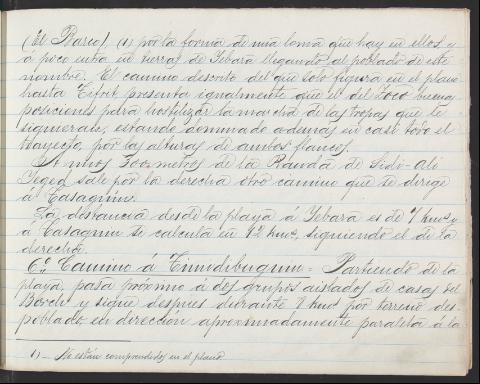 (El Barco), (1) por la forma de una loma que hay en ellos, y
á poco entra en tierras de Yebara llegando al poblado de este
nombre. El camino descrito del que solo figura en el plano
hasta Tifrit presenta igualmente que el del Zoco buenas
posiciones para hostilizar la marcha de las tropas que le
siguieran, estando dominado además en casi todo el
trayecto, por las alturas de ambos flancos.
A unos 300 metros de la Rauda de Sidi-Ali
sale por la derecha otro camino que se dirige
á Casagriun.
La distancia desde la playa á Yebara es de 7 kms y
á Casagriun se calcula en 12 kms, siguiendo el de la
derecha.
6º Camino á = Partiendo de la
playa, pasa próximo á dos grupos aislados de casas del
Borch y sigue despues durante 2 kms por terreno des-
poblado en dirección aproximadamente paralela á la
(1) — No están comprendidos en el plano